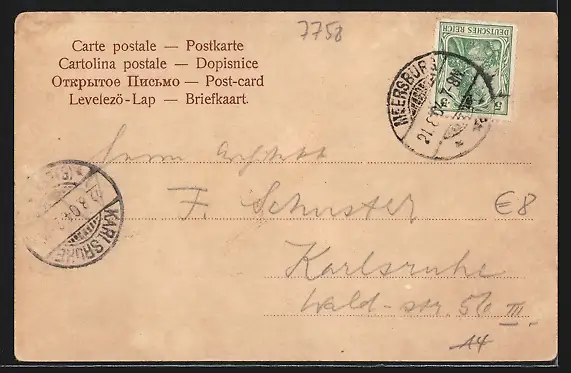 7758
Carte postale — Postkarte
Cartolina postale — Dopisnice
Открытое Письмо — Post-card
Levelező-Lap — Briefkaart.
DEUTSCHES REICH
5
MEERSBURG
21.8.
7-8N
KARLSRUHE
Herrn
F. Schuster
€8
Karlsruhe
Wald-str. 56 III.
A4